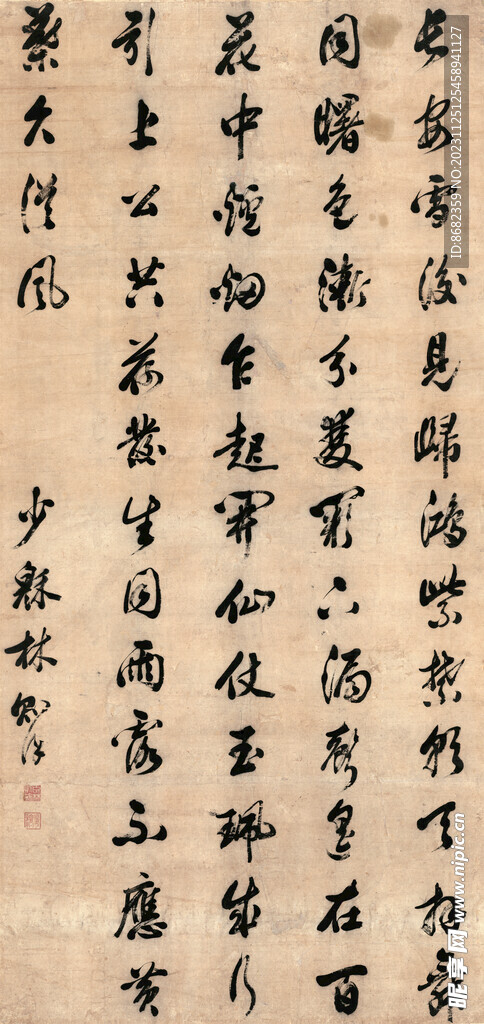 長安雪後見歸鴻紫禁朝天拜舞
同曙色漸分雙闕下漏聲遙在百
花中爐烟乍起開仙仗玉珮成行
引上公共荷發生同雨露不應黃
葉久從風
少穆林則徐
ID:8682359 NO:20231125125458941127
昵享网 www.nipic.cn